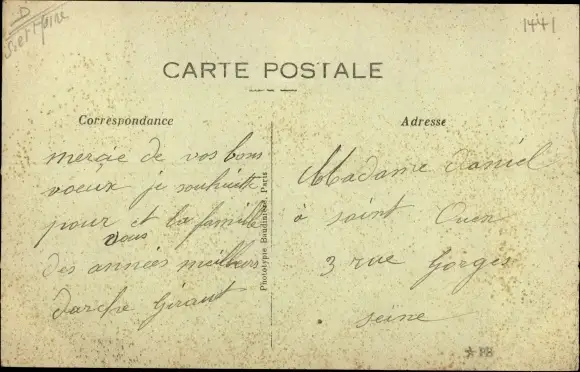 D
1441
CARTE POSTALE
Correspondance
mercie de vos bons
voeux je souhaite
pour vous et la famille
des années meilleurs
Giraut
Photolypie Baudinière, Paris
Adresse
Madame Daniel
à saint Ouen
3 rue Gorges
seine
* PB